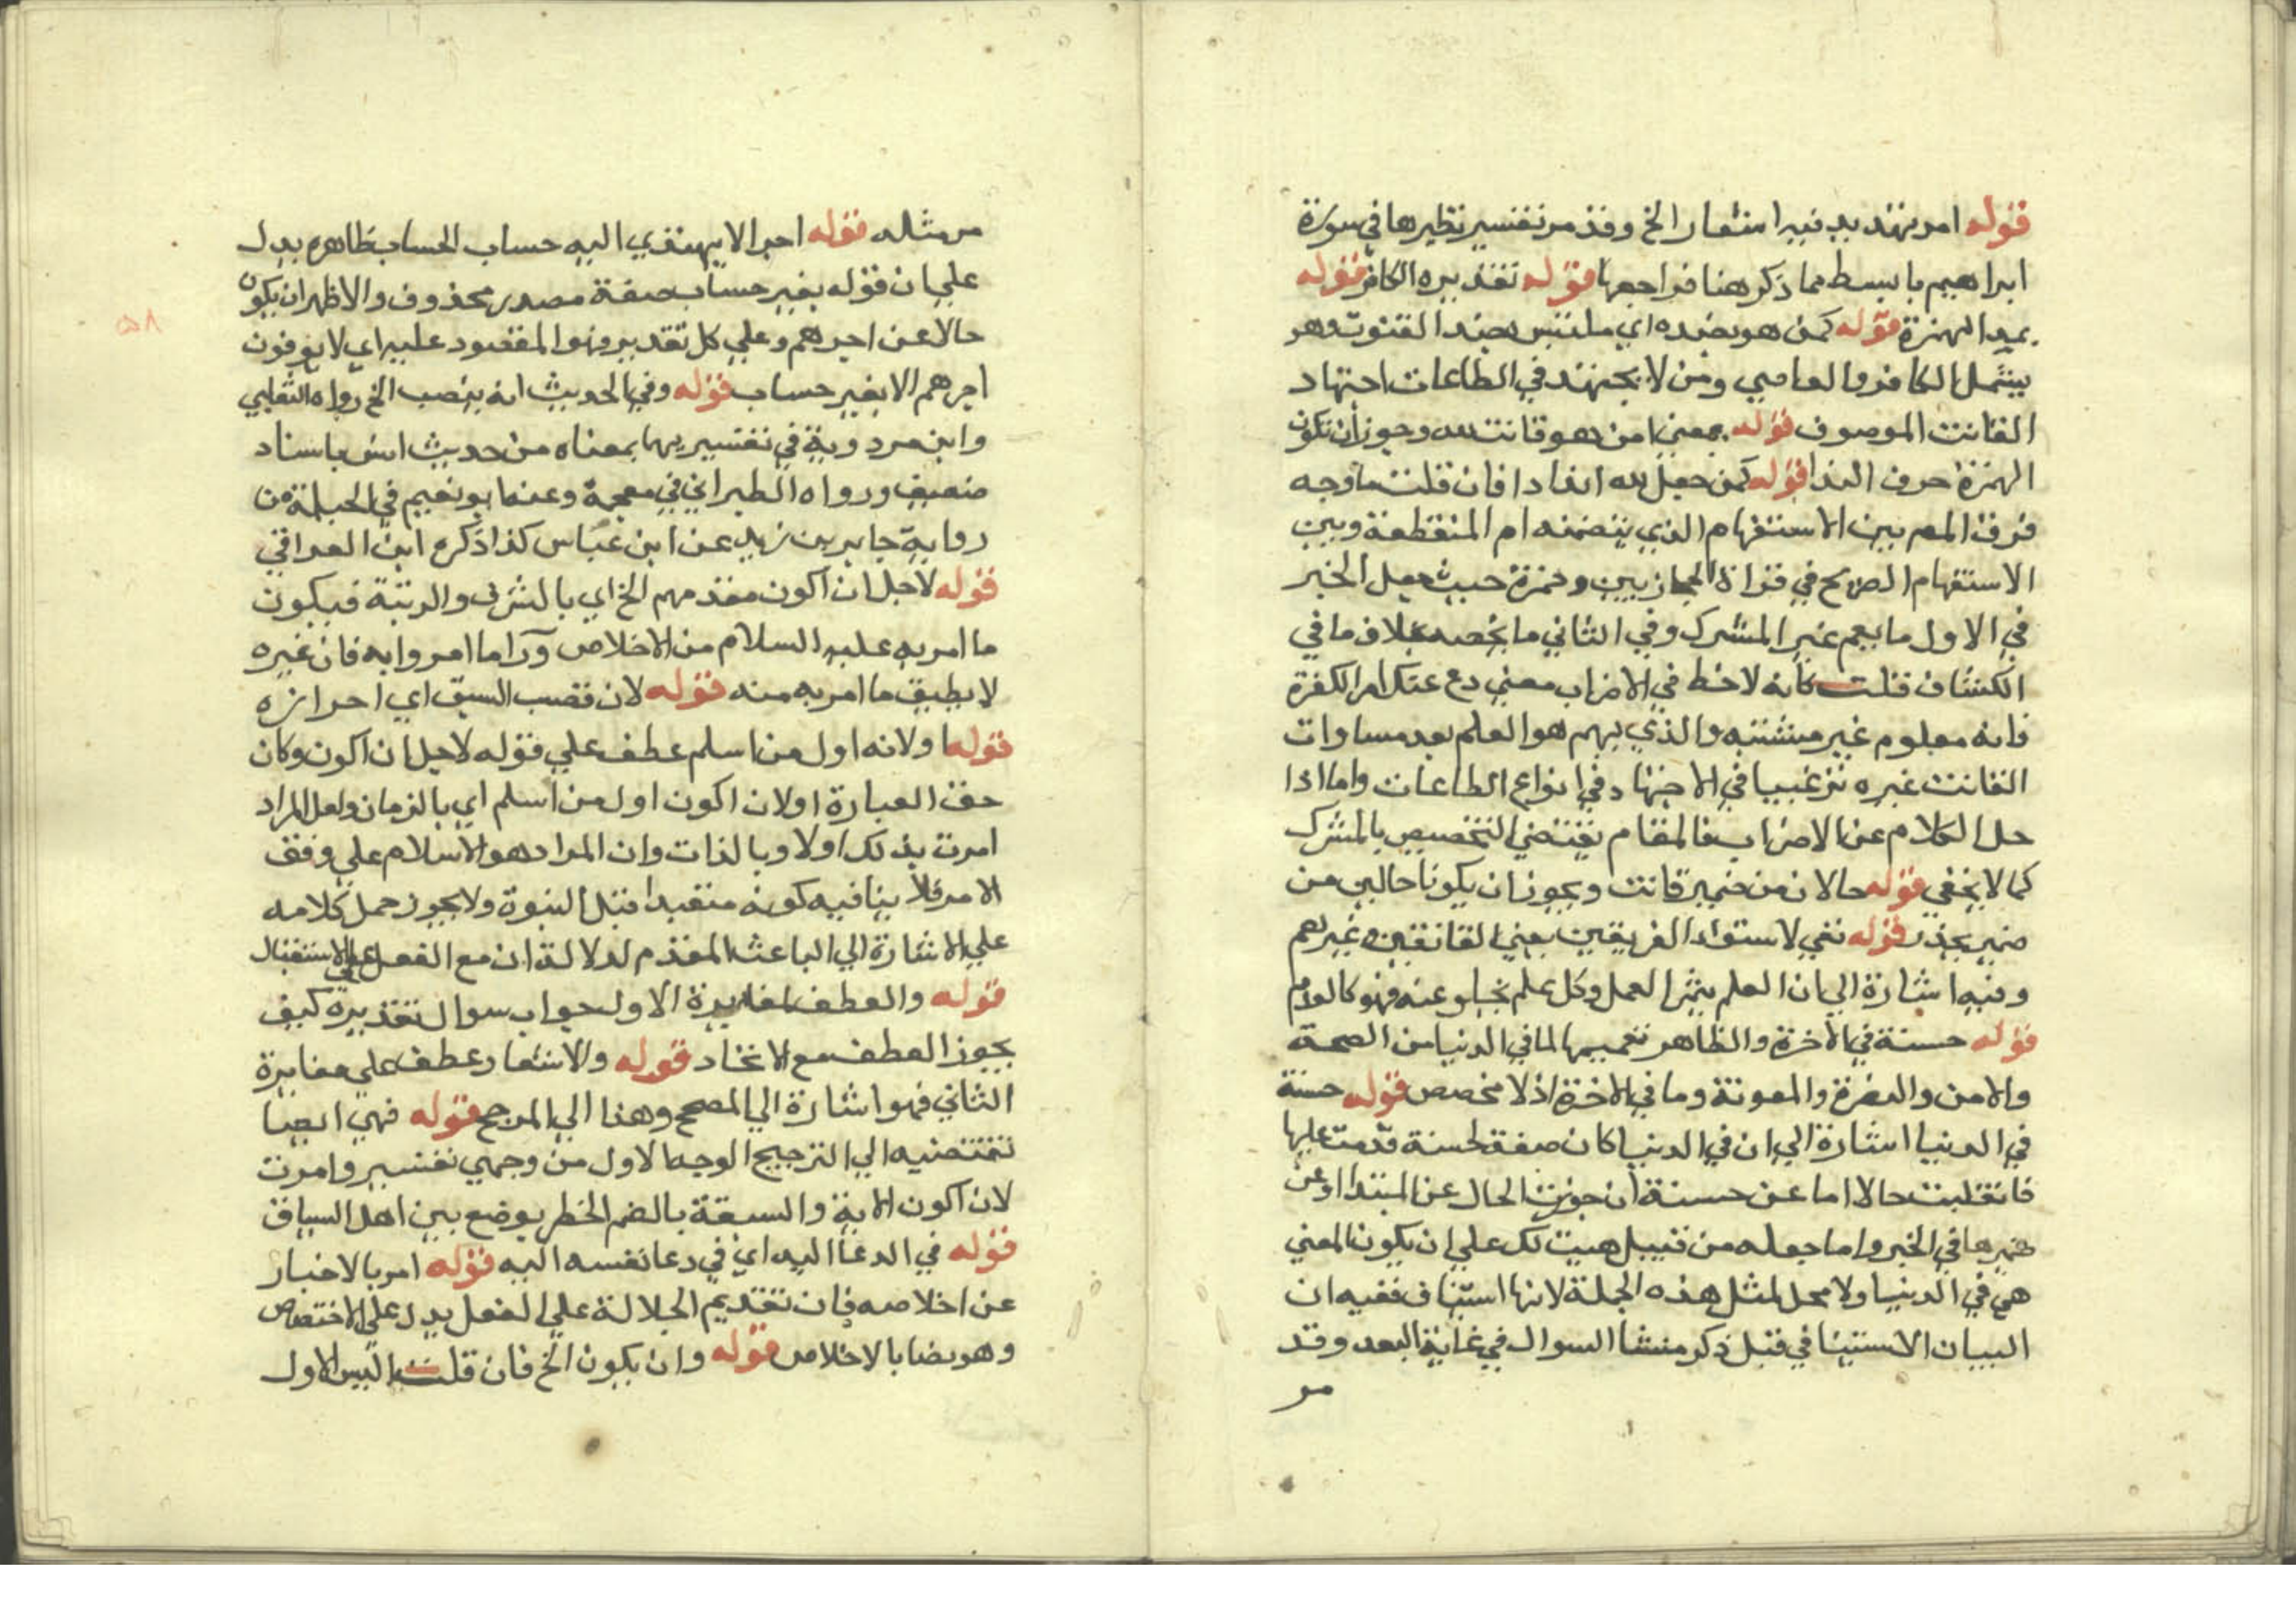 قوله امر تهديد فيه اشعار الخ وقد مر تفسير نظيرها في سورة
ابراهيم بابسط مما ذكر هنا فراجعها قوله تقديره الكافر قوله
بعد الهمزة قوله كمن هو بضده اي ملتبس بضد القنوت وهو
يشمل الكافر والعاصي ومن لا يجتهد في الطاعات اجتهاد
القانت الموصوف قوله بمعني امن هو قانت لله وجوز ان تكون
الهمزة حرف الندا قوله كمن جعل لله اندادا فان قلت ما وجه
فرق المص بين الاستفهام الذي يتضمنه ام المنقطعة وبين
الاستفهام الصريح في قراة الحجازيين وحمزة حيث جعل الخبر
في الاول ما يعم غير المشرك وفي الثاني ما يخصه بخلاف ما في
الكشاف قلت كانه لاحظ في الاضراب معني دع عنك امر الكفرة
فانه معلوم غير مشتبه والذي يهم هو العلم بعد مساوات
القانت غيره ترغيبا في الاجتهاد في انواع الطاعات واما اذا
حل الكلام عن الاضراب فالمقام يقتضي التخصيص بالمشرك
كما لا يخفي قوله حالان من ضمير قانت ويجوز ان يكونا حالين من
ضمير يحذر قوله نفي لاستواء الفريقين يعني القانتين وغيرهم
وفيه اشارة الي ان العلم يثمر العمل وكل علم يخلو عنه فهو كالعدم
قوله حسنة في الاخرة والظاهر تعميمها لما في الدنيا من الصحة
والامن والمغفرة والمعونة وما في الاخرة اذ لا مخصص قوله حسنة
في الدنيا اشارة الي ان في الدنيا كان صفة لحسنة قدمت عليها
فانقلبت حالا اما عن حسنة ان جوزت الحال عن المبتدا او عن
ضميرها في الخبر واما جعله من قبيل هيت لك علي ان يكون المعني
هي في الدنيا ولا محل لمثل هذه الجملة لانها استيناف ففيه ان
البيان الاستينافي قبل ذكر منشا السوال في غاية البعد وقد
مر
مر مثله قوله اجرا لا يهتدي اليه حساب الحساب ظاهره يدل
علي ان قوله بغير حساب صفة مصدر محذوف والاظهر ان يكون
حالا عن اجرهم وعلي كل تقدير فهو المقصود عليه اي لا يوفون
اجرهم الا بغير حساب قوله وفي الحديث انه ينصب الخ رواه الثعلبي
وابن مردوية في تفسيريهما بمعناه من حديث انس باسناد
ضعيف ورواه الطبراني في معجمه وعنه ابو نعيم في الحيلة من
رواية جابر بن زيد عن ابن عباس كذا ذكره ابن العراقي
قوله لاجل ان اكون مقدمهم الخ اي بالشرف والرتبة فيكون
ما امر به عليه السلام من الاخلاص ورا ما امروا به فان غيره
لا يطيق ما امر به منه قوله لان قصب السبق اي احرازه
قوله اولانه اول من اسلم عطف علي قوله لاجل ان اكون وكان
حق العبارة اولان اكون اول من اسلم اي بالزمان ولعل المراد
امرت بذلك اولا وبالذات وان المراد هو الاسلام علي وفق
الامر فلا ينافيه كونه متقيدا قبل النبوة ولا يجوز حمل كلامه
علي الاشارة الي الباعث المقدم لدلالة ان مع الفعل علي الاستقبال
قوله والعطف لمغايرة الاول جواب سوال تقديره كيف
يجوز العطف مع الاتحاد قوله والاشعار عطف علي مغايرة
الثاني فهو اشارة الي المصحح وهذا الي المرجح قوله فهي ايضا
تقتضيه الي الترجيح الوجه الاول من وجهي تفسير وامرت
لان اكون الاية والسبقة بالضم الخطر يوضع بين اهل السباق
قوله في الدعا اليه اي في دعا نفسه اليه قوله امر بالاخبار
عن اخلاصه فان تقديم الجلالة علي الفعل يدل علي الاختصاص
وهو رضا بالاخلاص قوله وان يكون الخ فان قلت اليس الاول
٥٨